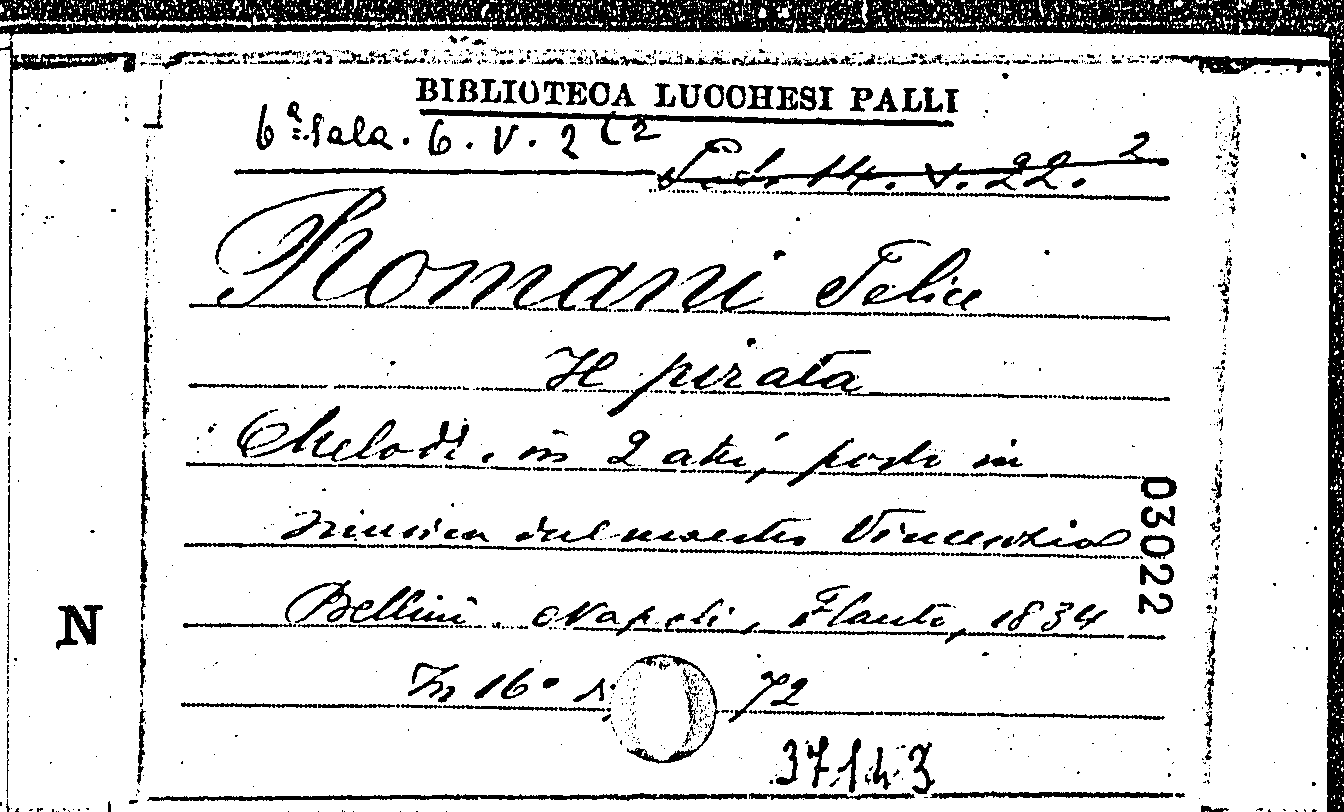 BIBLIOTECA LUCCHESI PALLI
6ª Sala. 6. V. 2 (2
14. V. 22. 2
Romani Felice
Il pirata
Melodr. in 2 atti, posto in
musica dal maestro Vincenzio
Bellini. Napoli, Flauto, 1834
In 16° 72
37143
03022
N